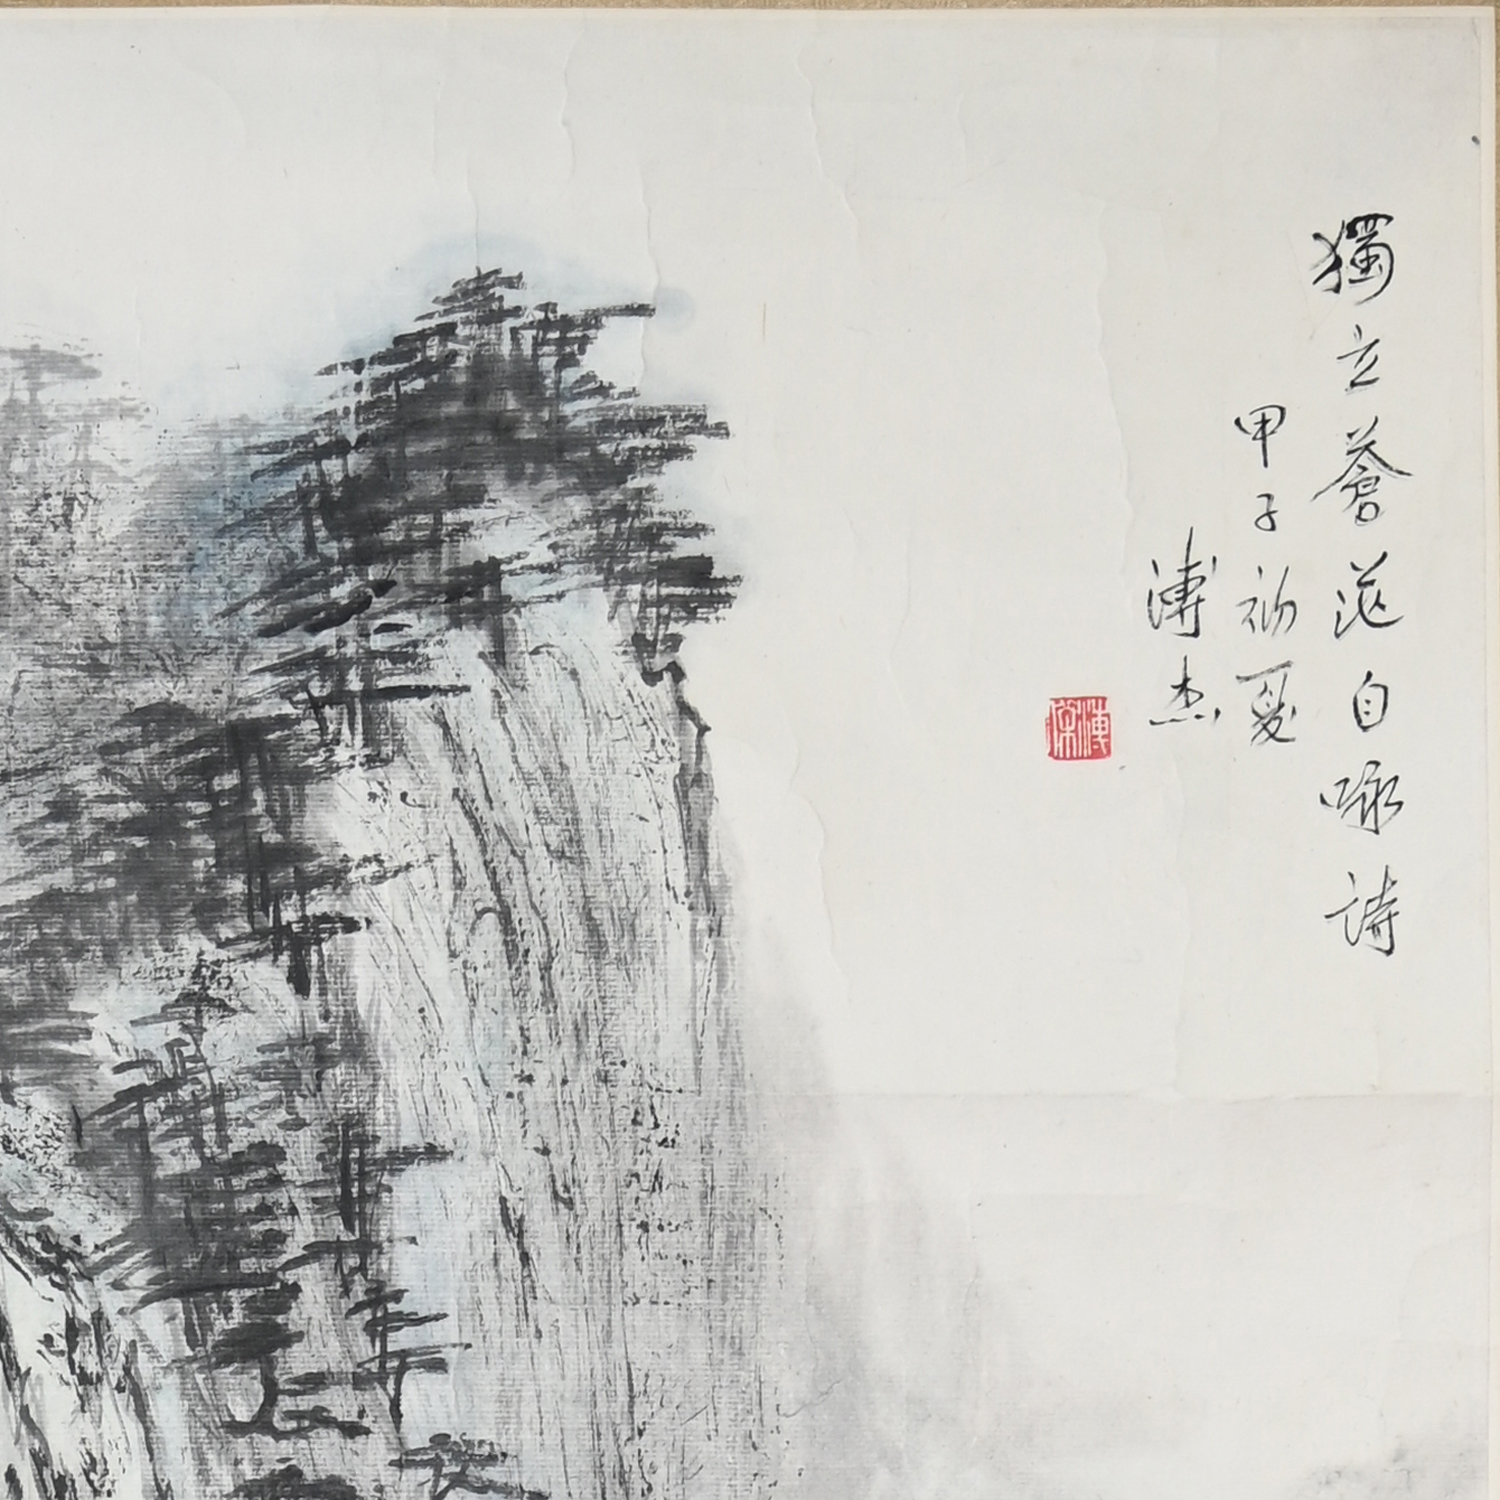 獨立蒼茫自咏詩
甲子初夏
溥杰
溥傑